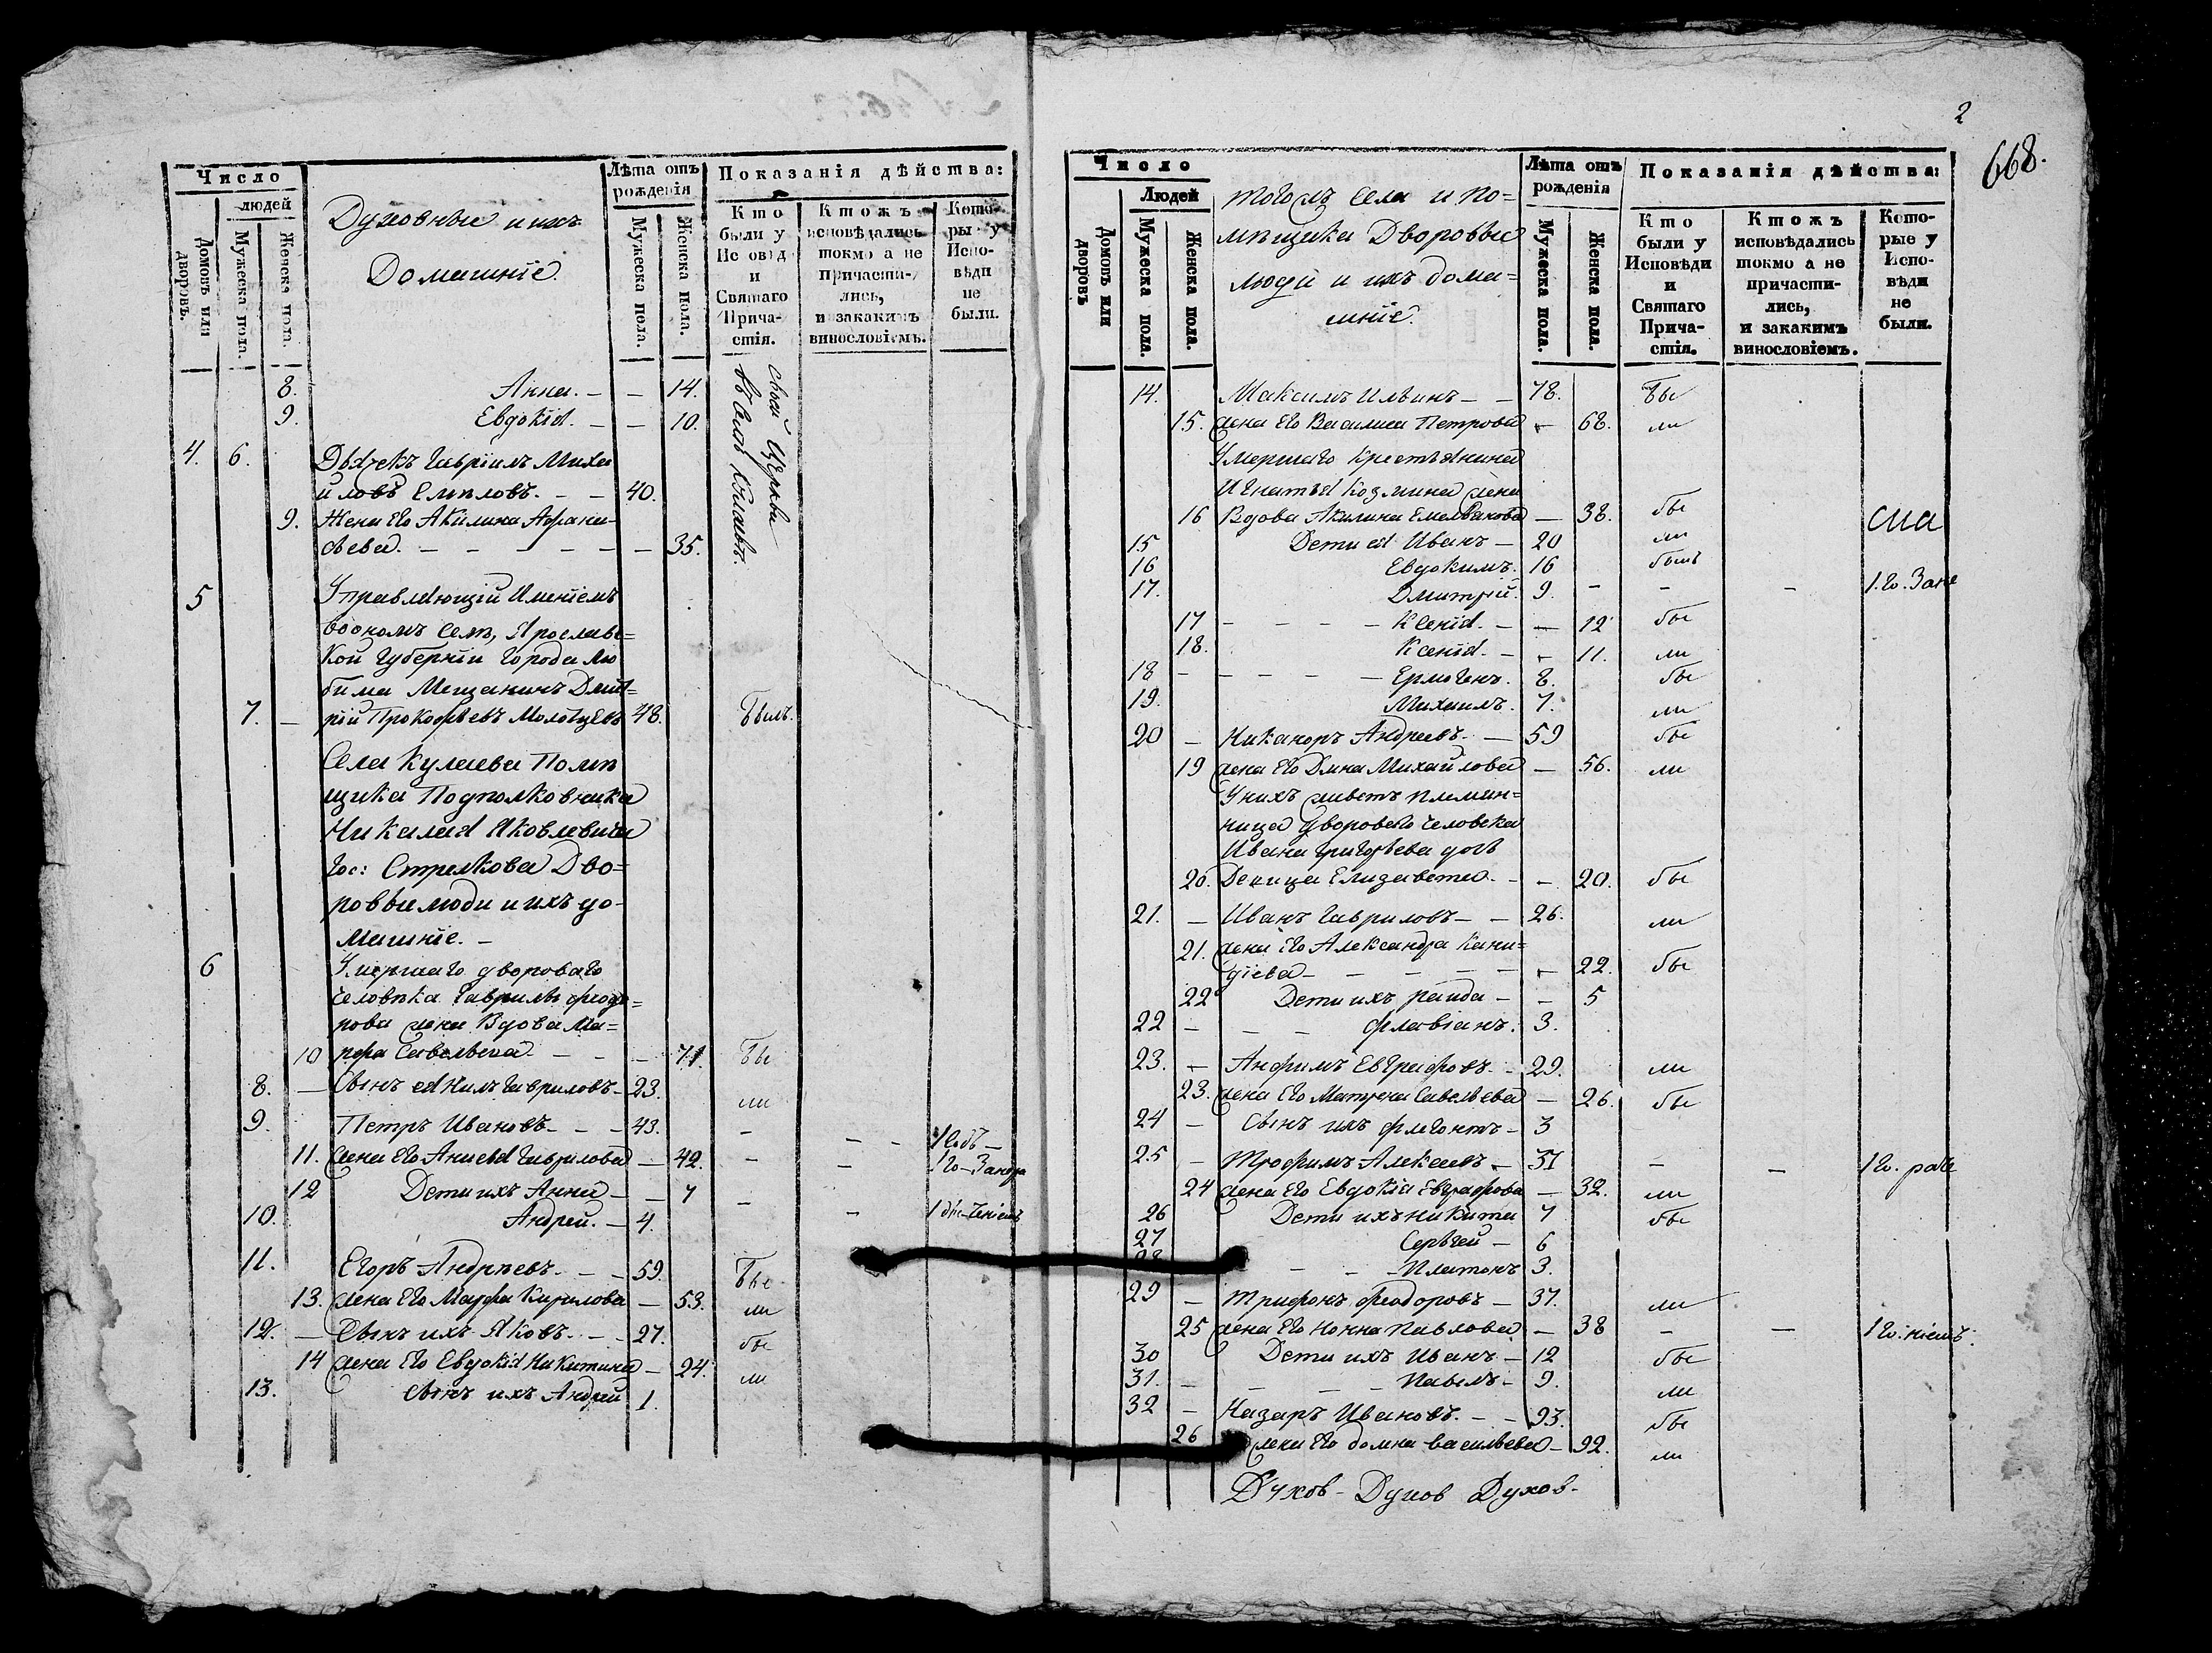 Число
людей
Домовъ или дворовъ.
Мужеска пола.
Женска пола.
Духовные и ихъ
Домашніе.
Лѣта отъ рожденія
Мужеска пола.
Женска пола.
Показанія дѣйства:
Кто были у Исповѣд и Святаго Прича-стія.
Ктожъ исповѣдались токмо а не причасти-лись, и закакимъ винословіемъ.
Кото-ры у Испо-вѣди не были.
8. Анна. — — 14.
9. Евдокія. — — 10.
своей Церкви
4. 6. Дьячекъ Гавріилъ Михаи
иловъ — — 40.
9. Жена Его Акилина Афана-
сьева. — — — — — — 35.
5 Управляющій Имѣніемъ
воономъ Селѣ, Ярославс=
кой Губерніи Города Лю
бима Мещанинъ Дмит=
7. — рій Прокофьевъ 48. Былъ.
Села Кулаева Помѣ
щика Подполковника
Николая Яковлевича
Гос: Стрелкова Дво=
ровые люди и ихъ до-
машніе. —
6 Умершаго двороваго
человѣка Гаврилы Феодо=
рова жена Вдова Ма=
10 рфа Савельева. — — — 71. бы
8. — Сынъ ея Нилъ Гавриловъ — 23. ли
9. Петръ Ивановъ — — — 43. — — —
11. жена Его Анисья Гаврилова — 42. — —
12 Дети ихъ Анна — — 7 — —
10. Андрей. — 4.
11. Егоръ Андреевъ. — — 59. бы
13. жена Его Марфа Кирилова — 53. ли
12. — Сынъ ихъ Яковъ. — — 27. бы
14 жена Его Евдокія Никитина — 24. ли
13. сынъ ихъ Андрей 1.
2
668.
Число
Людей
Домовъ или дворовъ
Мужеска пола.
Женска пола.
тогожъ Села и По=
мѣщика Дворовые
люди и ихъ дома=
шніе.
Лѣта отъ рожденія
Мужеска пола.
Женска пола.
Показанія дѣйства:
Кто были у Исповѣди и Святаго Прича-стія.
Ктожъ исповѣдались токмо а не причасти-лись, и закакимъ винословіемъ.
Кото-рые у Испо-вѣди не были.
14. Максимъ Ильинъ — — 78. бы
15. жена Его Василиса Петрова — 68. ли
Умершаго Крестьянина
Игнатья Козмина жена
16 Вдова Акилина Емельянова — 38. бы
15 Дети ея Иванъ — 20 ли
16 Евдокимъ. 16 былъ
17. Дмитрій. 9. — — —
17 — — — — Ксенія. — — 12 бы
18. Ксенія. — — 11. ли
18 — — — — — Ермогенъ. 8. бы
19. Михаилъ. 7. ли
20 — Никаноръ Андреевъ. — 59 бы
19 жена Его Анна Михайлова — 56. ли
У нихъ живетъ племян=
ница двороваго человека
Ивана Григорьева дочь
20. Девица Елизавета. — — 20. бы
21. — Иванъ Гавриловъ — — 26. ли
21. жена Его Александра Кани=
діева — — — — — — 22. бы
22 Дети ихъ Раида — — 5
22 — — — Флавіанъ. 3.
23. — Анфимъ Евграфовъ. — 29. ли
23. жена Его Матрена Савельева — 26. бы
24 — Сынъ ихъ Флегонтъ — 3
25 — Трофимъ Алексеевъ — 31 — —
24 жена Его Евдокіа Евграфова — 32. ли
26 Дети ихъ Никита 7 бы
27 Сергей — 6
28 — — — Платонъ 3.
29 — Трифонъ Феодоровъ — 37. ли
25 жена Его Нонна Павлова — 38 — —
30 Дети ихъ Иванъ — 12 бы
31. — — — — Павелъ — 9. ли
32 — Назаръ Ивановъ. — — 93. бы
26 жена Его Домна Васильева — 92. ли
Духов - Духов Духов-